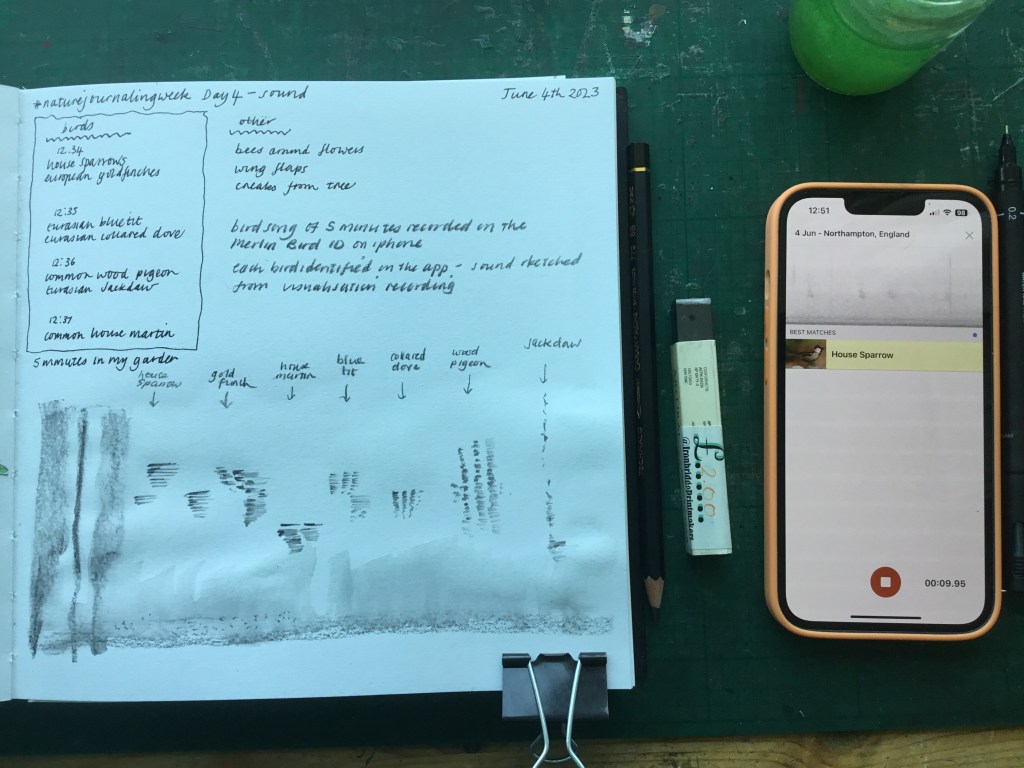 #naturejournalingweek Day 4 - sound
June 4th 2023
birds
12:34
house sparrows
european goldfinches
12:35
eurasian blue tit
eurasian collared dove
12:36
common wood pigeon
eurasian jackdaw
12:37
common house martin
other
bees around flowers
wing flaps
creaks from tree
birdsong of 5 minutes recorded on the
Merlin Bird ID on iphone
each bird identified in the app - sound sketched
from visualisation recording
5 minutes in my garden
house
sparrow
gold
finch
house
martin
blue
tit
collared
dove
wood
pigeon
jackdaw
£2.00
@IronbridgePrintmakers
12:51
98
4 Jun - Northampton, England
BEST MATCHES
House Sparrow
00:09.95
0.2